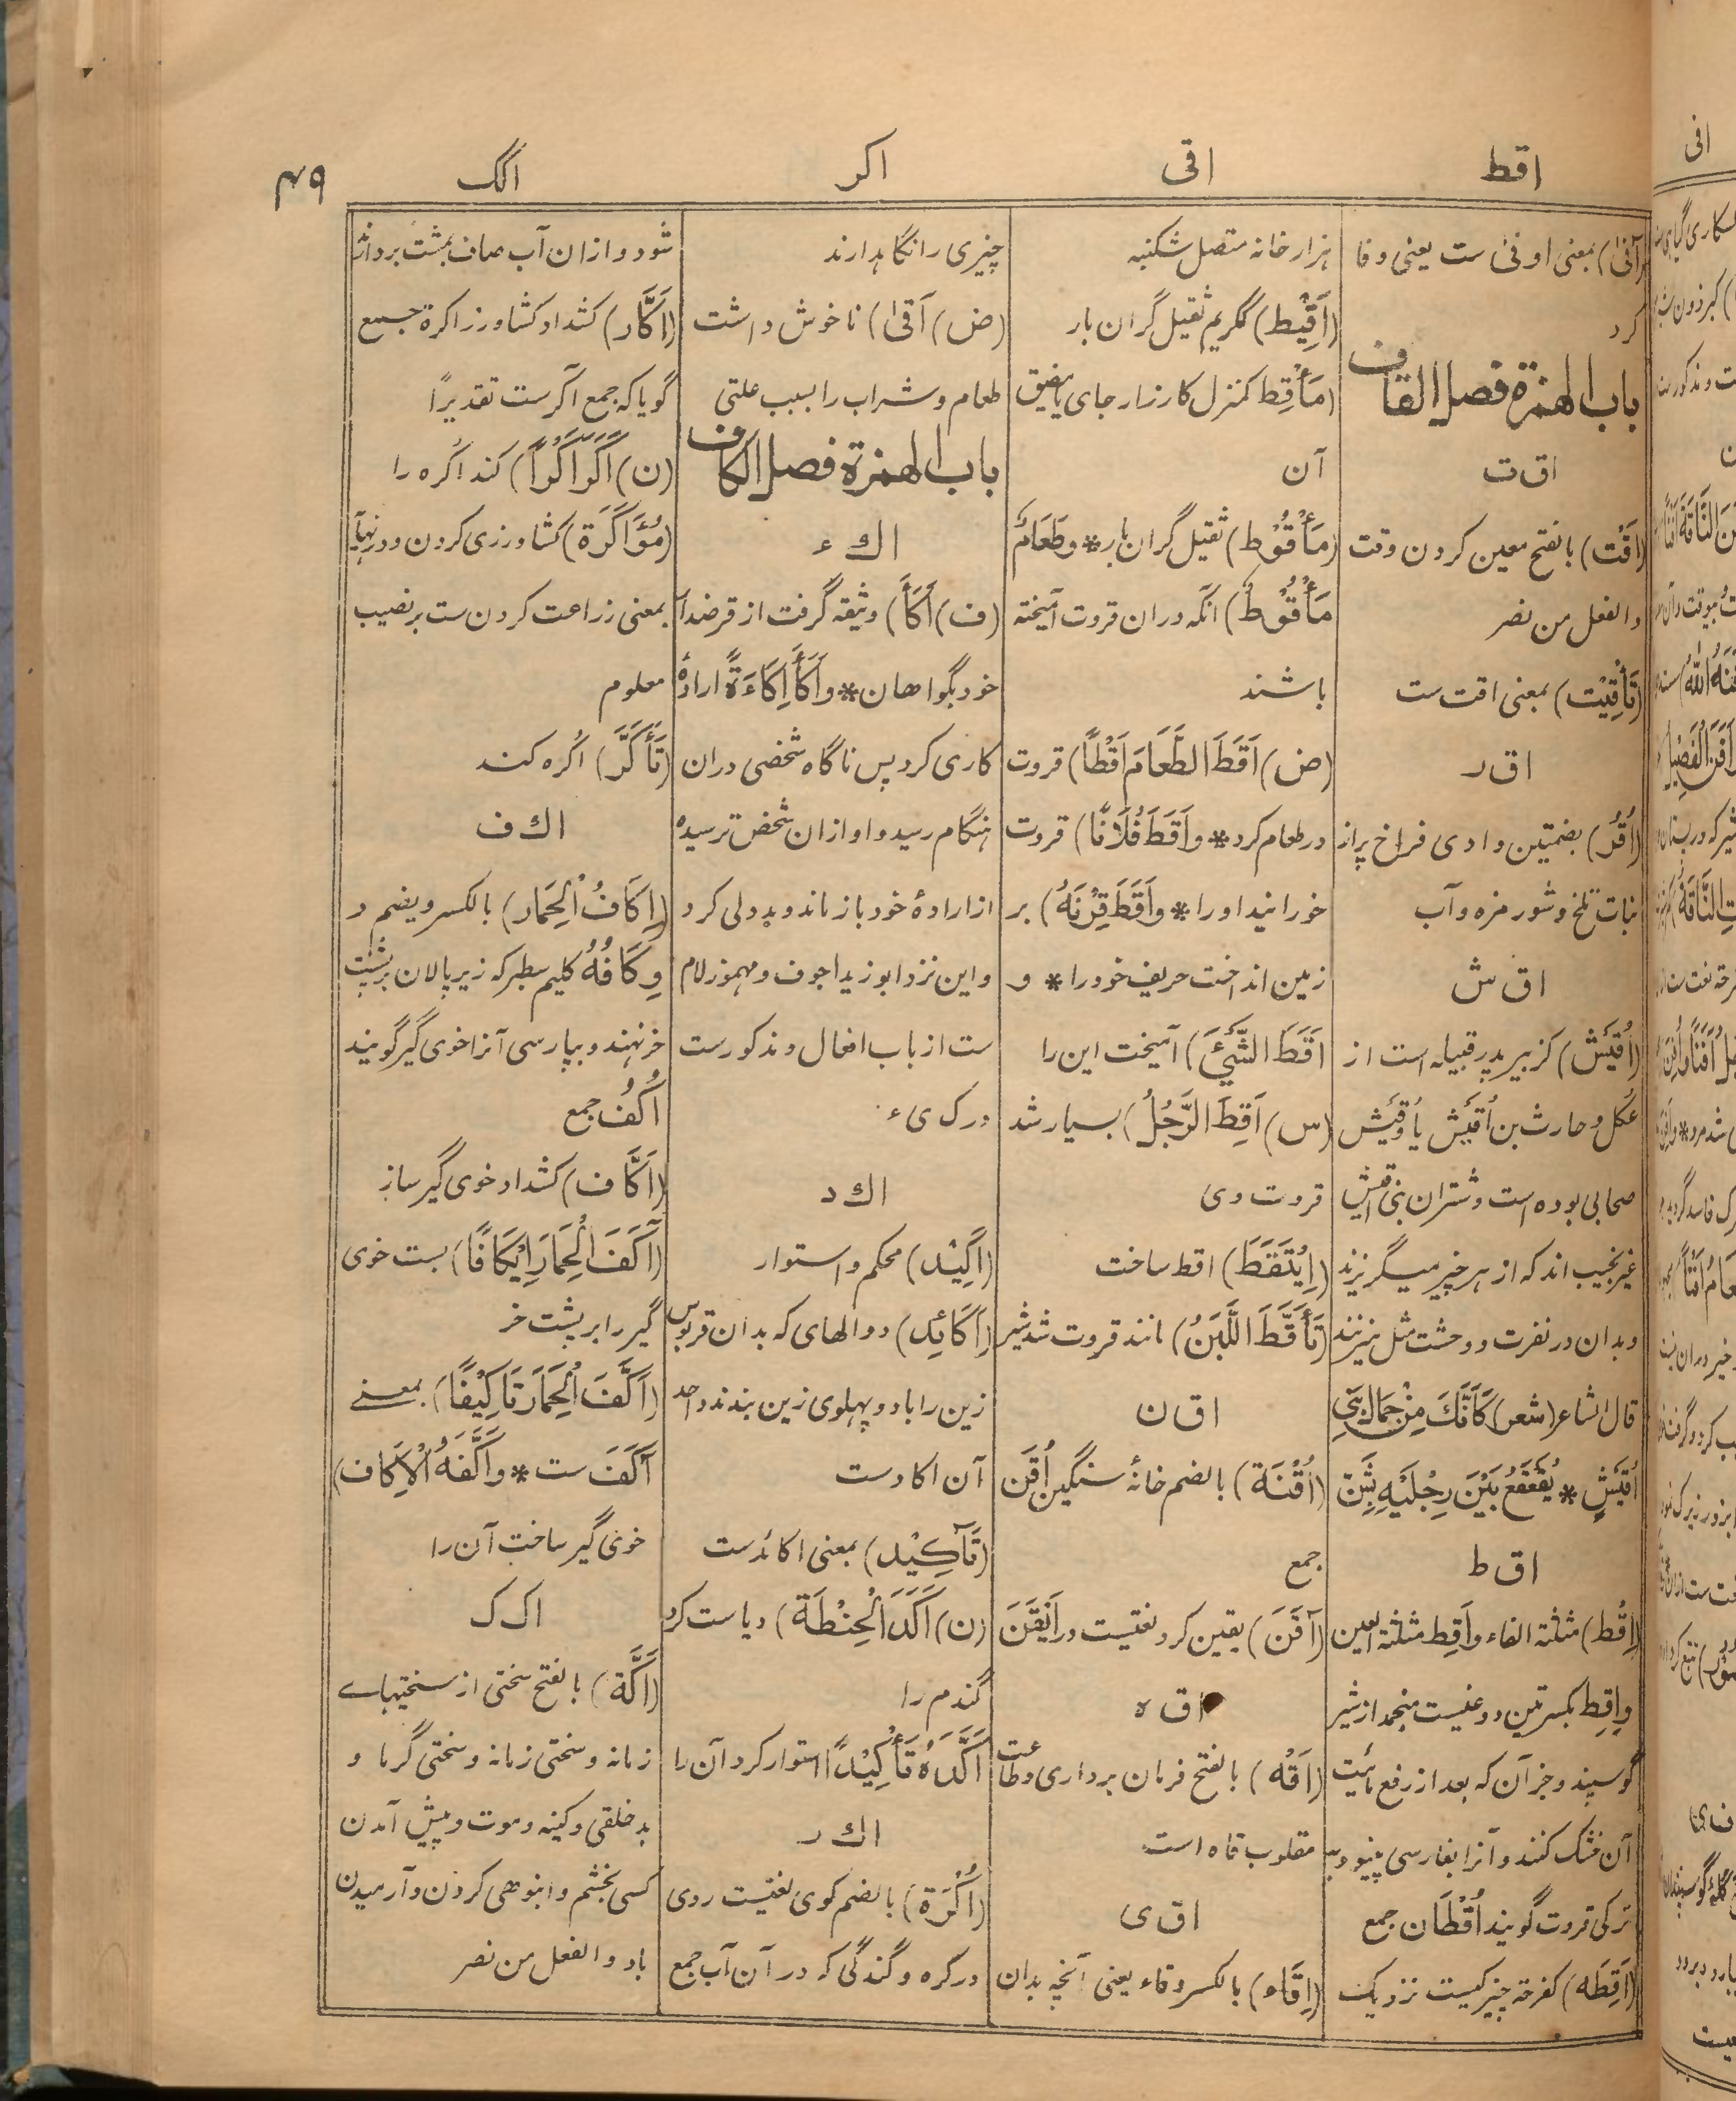 اقط
اقی
اکر
اکک
۴۹
(آفیٰ) بمعنی اوفیٰ ست یعنی وفا
کرد
باب الهمزة فصل القاف
اق ت
(اَقْت) بالفتح معین کردن وقت
والفعل من نصر
(تَأْقِیْت) بمعنی اقت ست
اق ر
(اُقُر) بضمتین وادی فراخ پراز
نبات تلخ و شور مزه و آب
اق ش
(اُقَیْش) کزبیر پدر قبیله است از
عکل و حارث بن اُقَیْش یا وُقَیْش
صحابی بوده است و شتران بنی اقیش
غیر نجیب اند که از هر چیز میگریزند
وبدان در نفرت و وحشت مثل زنند
قال الشاعر (شعر) کَأَنَّكَ مِنْ جِمَالِ بَنِي
اُقَيْشٍ * يُقَعْقَعُ بَيْنَ رِجْلَيْهِ بِشَنٍّ
اق ط
(اِقْط) مثلثة الفاء واَقِط مثلثة العین
واِقِط بکسرتین دوغیست منجمد از شیر
گوسپند و جز آن که بعد از رفع مائیت
آن خشک کنند و آنرا بفارسی پینو و به
ترکی قروت گویند اُقْطَان جمع
(اَقِطَه) کفرحة چیزکیست نزدیک
هزارخانه متصل شکنبه
(اَقِیْط) کگریم ثقیل گران بار
(مَأْقِط) کمنزل کارزار جای یا مضیق
آن
(مَأْقُوْط) ثقیل گران بار * وطَعَامٌ
مَأْقُوْطٌ) آنکه دران قروت آمیخته
باشند
(ض) اَقَطَ الطَّعَامَ اَقْطًا) قروت
در طعام کرد * واَقَطَ فُلَانًا) قروت
خورانید اورا * واَقَطَ قِرْنَهُ) بر
زمین انداخت حریف خودرا * و
اَقَطَ الشَّيْءَ) آمیخت این را
(س) اَقِطَ الرَّجُلُ) بسیار شد
قروت وی
(اِیْتَقَطَ) اقط ساخت
(تَأَقَّطَ اللَّبَنُ) مانند قروت شد شیر
اق ن
(اُقْنَة) بالضم خانۀ سنگین اُقَن
جمع
(آقَنَ) یقین کرد لغتیست در اَیْقَنَ
اق ه
(اَقْه) بالفتح فرمان برداری وطاعت
مقلوب قاه است
اق ی
(اِقَاء) بالکسر وقاء یعنی آنچه بدان
چیزی را نگاهدارند
(ض) اَقیٰ) ناخوش داشت
طعام و شراب را بسبب علتی
باب الهمزة فصل الکاف
اك ء
(ف) اَكَأَ) وثیقه گرفت از قرضدار
خود بگواهان * واَكَأَ اِكَاءَةً ارادۀ
کاری کرد پس ناگاه شخصی دران
هنگام رسید و او ازان شخص ترسیده
از ارادۀ خود باز ماند و بددلی کرد
و این نزد ابوزید اجوف ومهموزلام
ست از باب افعال و مذکورست
درک ی ء
اك د
(اَكِیْد) محکم و استوار
(اَكَائِد) دوالهای که بدان قربوس
زین را با دو پهلوی زین بندند واحد
آن اکادست
(تَآكِیْد) بمعنی اکائدست
(ن) اَكَدَ الْحِنْطَةَ) دیاست کرد
گندم را
اَكَّدَهُ تَأْكِیْدًا) استوار کرد آن را
اك ر
(اُكْرَة) بالضم کوی لغتیست روی
درکره و گندگی که در آن آب جمع
شود و ازان آب صاف بمشت بردارند
(اَكَّار) کشداد کشاورز اکرة جمع
گویا که جمع آکرست تقدیرًا
(ن) اَكَرَ اَكْرًا) کند اکره را
(مُؤَاكَرَة) کشاورزی کردن و در نهایه
بمعنی زراعت کردن ست بر نصیب
معلوم
(تَأَكَّرَ) اُکره کند
اك ف
(اِكَافُ الْحِمَار) بالکسر ویضم و
وِكَافُهُ گلیم سطبر که زیر پالان برپشت
خر نهند و بپارسی آنرا خوی گیر گویند
اُكُف جمع
(اَكَّاف) کشداد خوی گیر ساز
(آكَفَ الْحِمَارَ اِیْكَافًا) بست خوی
گیر را بر پشت خر
(اَكَّفَ الْحِمَارَ تَاكِیْفًا) بمعنی
آكَفَ ست * واَكَّفَهُ الْاِكَاف)
خوی گیر ساخت آن را
اک ک
(اَكَّة) بالفتح سختی از سختیهای
زمانه وسختی زمانه وسختی گرما و
بدخلقی وکینه وموت و پیش آمدن
کسی بخشم و انبوهی کردن و آرمیدن
باد والفعل من نصر